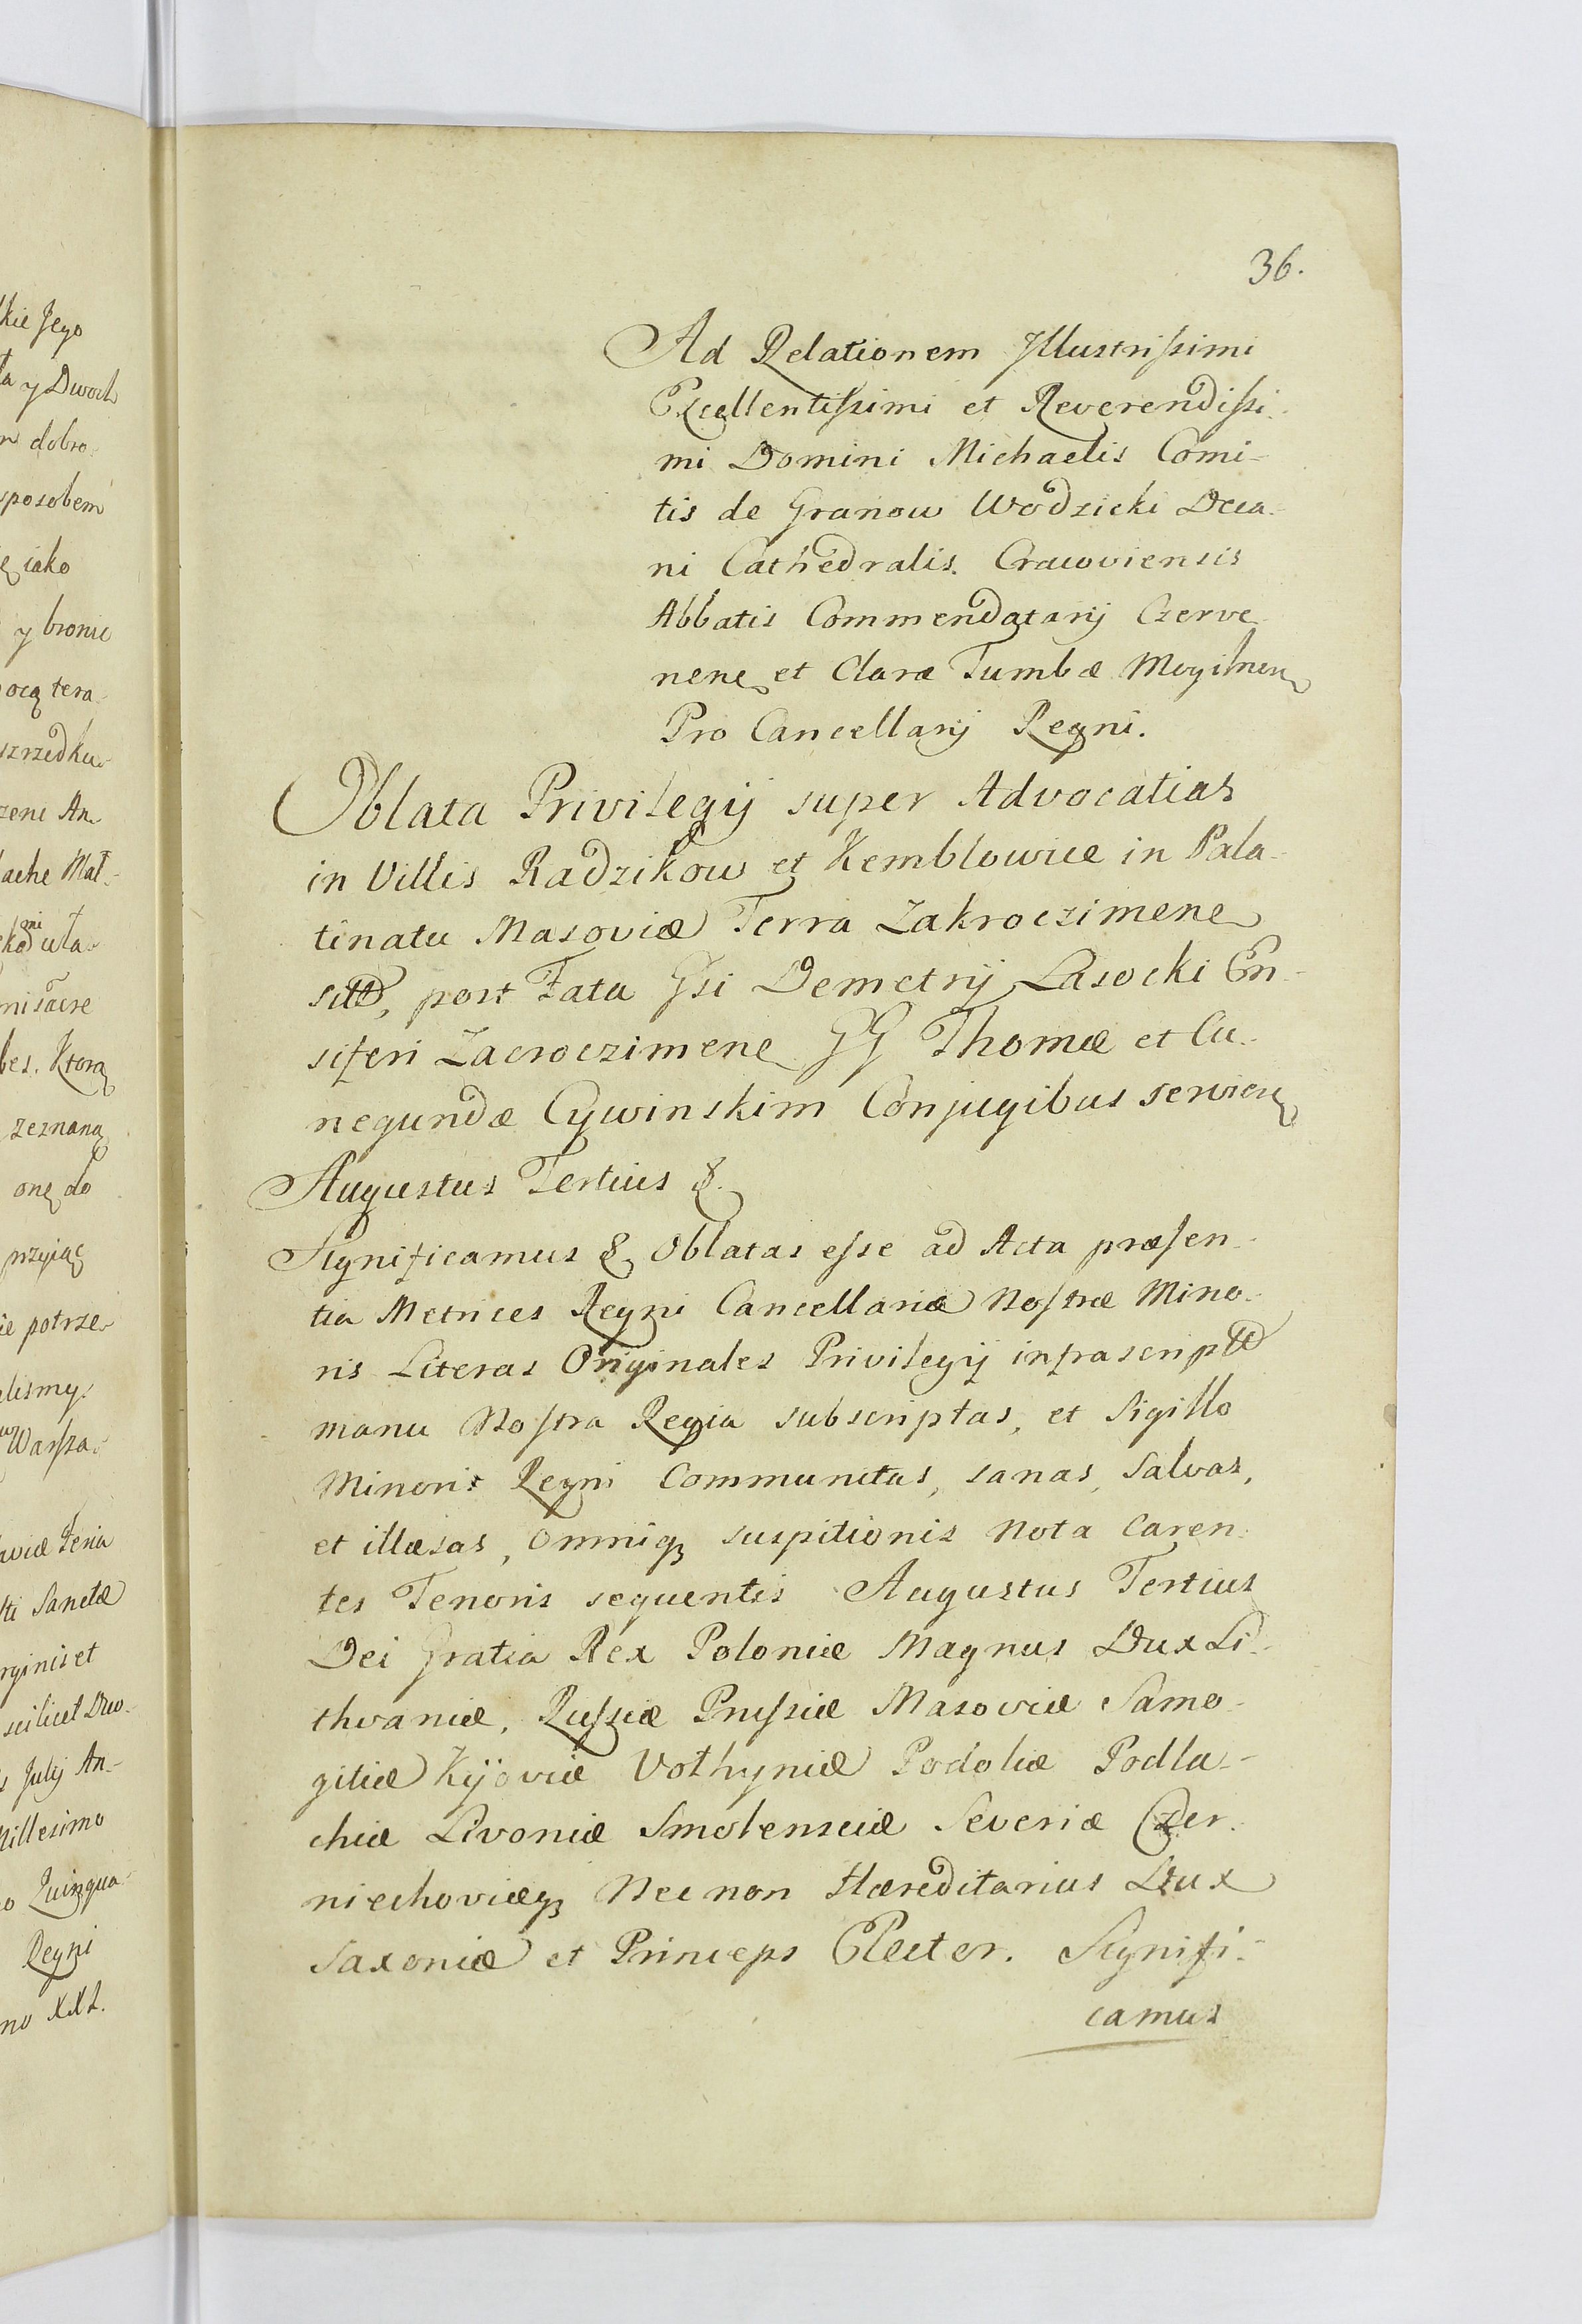 36.
Ad Relationem Illustrissimi
Excellentissimi et Reverendissi-
mi Domini Michaelis Comi-
tis de Granow Wodzicki Deca-
ni Cathedralis Cracoviensis
Abbatis Commendatarij Czerve-
nene et Claræ Tumbæ Mogilnen
Pro Cancellarij Regni.
Oblata Privilegij super Advocatias
in Villis Radzikow et Kemblowice in Pala-
tinatu Masoviæ Terra Zakroczimene
sitt, post Fata Gsi Demetrij Lasocki En-
siferi Zacroczimene GG Thomæ et Cu-
negundæ Cywinskim Conjugibus servien
Augustus Tertius &.
Significamus & Oblatas esse ad Acta præsen-
tia Metrices Regni Cancellariæ Nostræ Mino-
ris Literas Originales Privilegij infrascriptt
manu Nostra Regia subscriptas, et Sigillo
Minoris Regni Communitas, sanas, Salvas,
et illæsas, omniq suspitionis Nota Caren-
tes Tenoris sequentis Augustus Tertius
Dei Gratia Rex Poloniæ Magnus Dux Li-
thvaniæ, Russiæ Prussiæ Masoviæ Samo-
gitiæ Kijoviæ Volhyniæ Podoliæ Podla-
chiæ Livoniæ Smolensciæ Severiæ Czer-
niechoviæq Nec non Hæreditarius Dux
Saxoniæ et Princeps Elector. Signifi-
camus
kie Jego
ta y Dwoch
dobro-
sposobem
iako
y bronic
ocą tera-
zene An-
ache Mat-
nisacre
bes. Ktorą
zeznaną
onę do
przyiąc
ie potrze-
elismy.
Warsza-
aviæ Feria
sti Sanctæ
rginis et
scilicet Duo-
s Julij An-
Millesimo
o Quinqua-
Regni
no XXI.